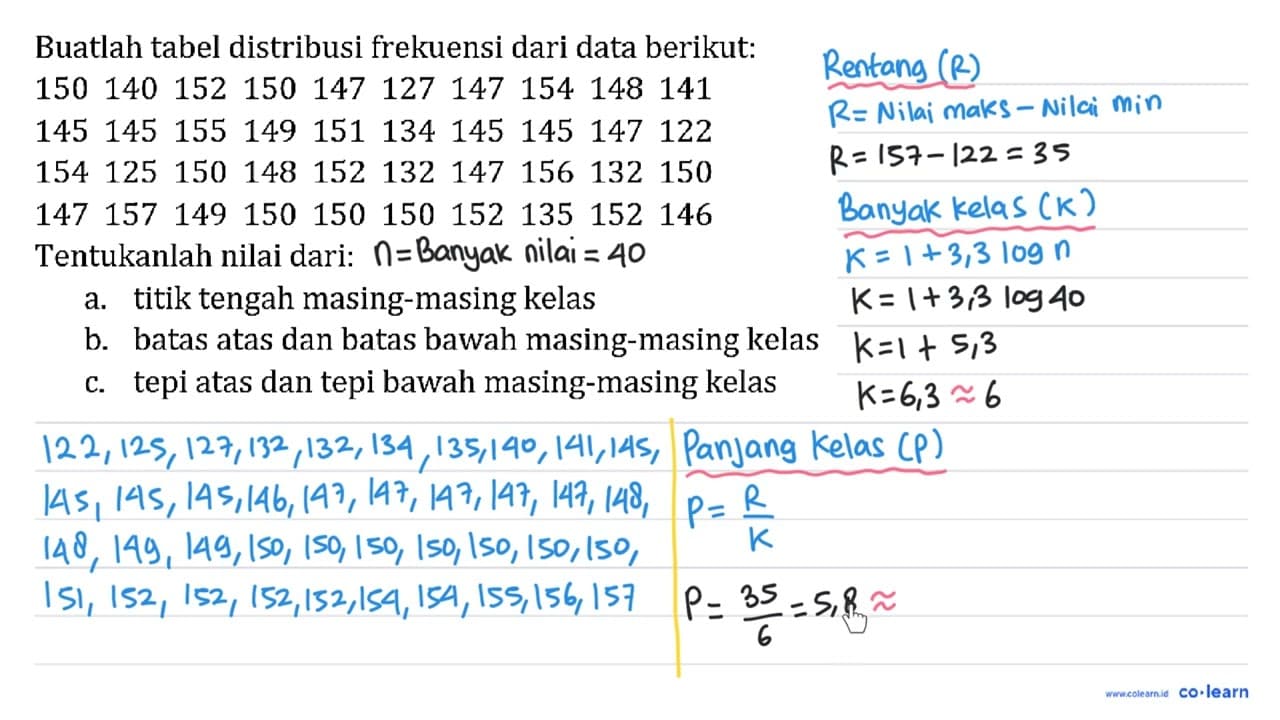 Buatlah tabel distribusi frekuensi dari data berikut:
150 140 152 150 147 127 147 154 148 141
145 145 155 149 151 134 145 145 147 122
154 125 150 148 152 132 147 156 132 150
147 157 149 150 150 150 152 135 152 146
Tentukanlah nilai dari: n = Banyak nilai = 40
a. titik tengah masing-masing kelas
b. batas atas dan batas bawah masing-masing kelas
c. tepi atas dan tepi bawah masing-masing kelas
Rentang (R)
R = Nilai maks - Nilai min
R = 157 - 122 = 35
Banyak kelas (K)
K = 1 + 3,3 log n
K = 1 + 3,3 log 40
K = 1 + 5,3
K = 6,3 ≈ 6
122, 125, 127, 132, 132, 134, 135, 140, 141, 145,
145, 145, 145, 146, 147, 147, 147, 147, 147, 148,
148, 149, 149, 150, 150, 150, 150, 150, 150, 150,
151, 152, 152, 152, 152, 154, 154, 155, 156, 157
Panjang Kelas (P)
P = R/K
P = 35/6 = 5,8 ≈
www.colearn.id co·learn